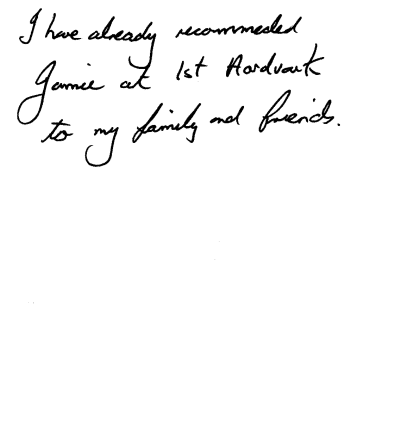 I have already recommended
Jamie at 1st Aardvark
to my family and friends.